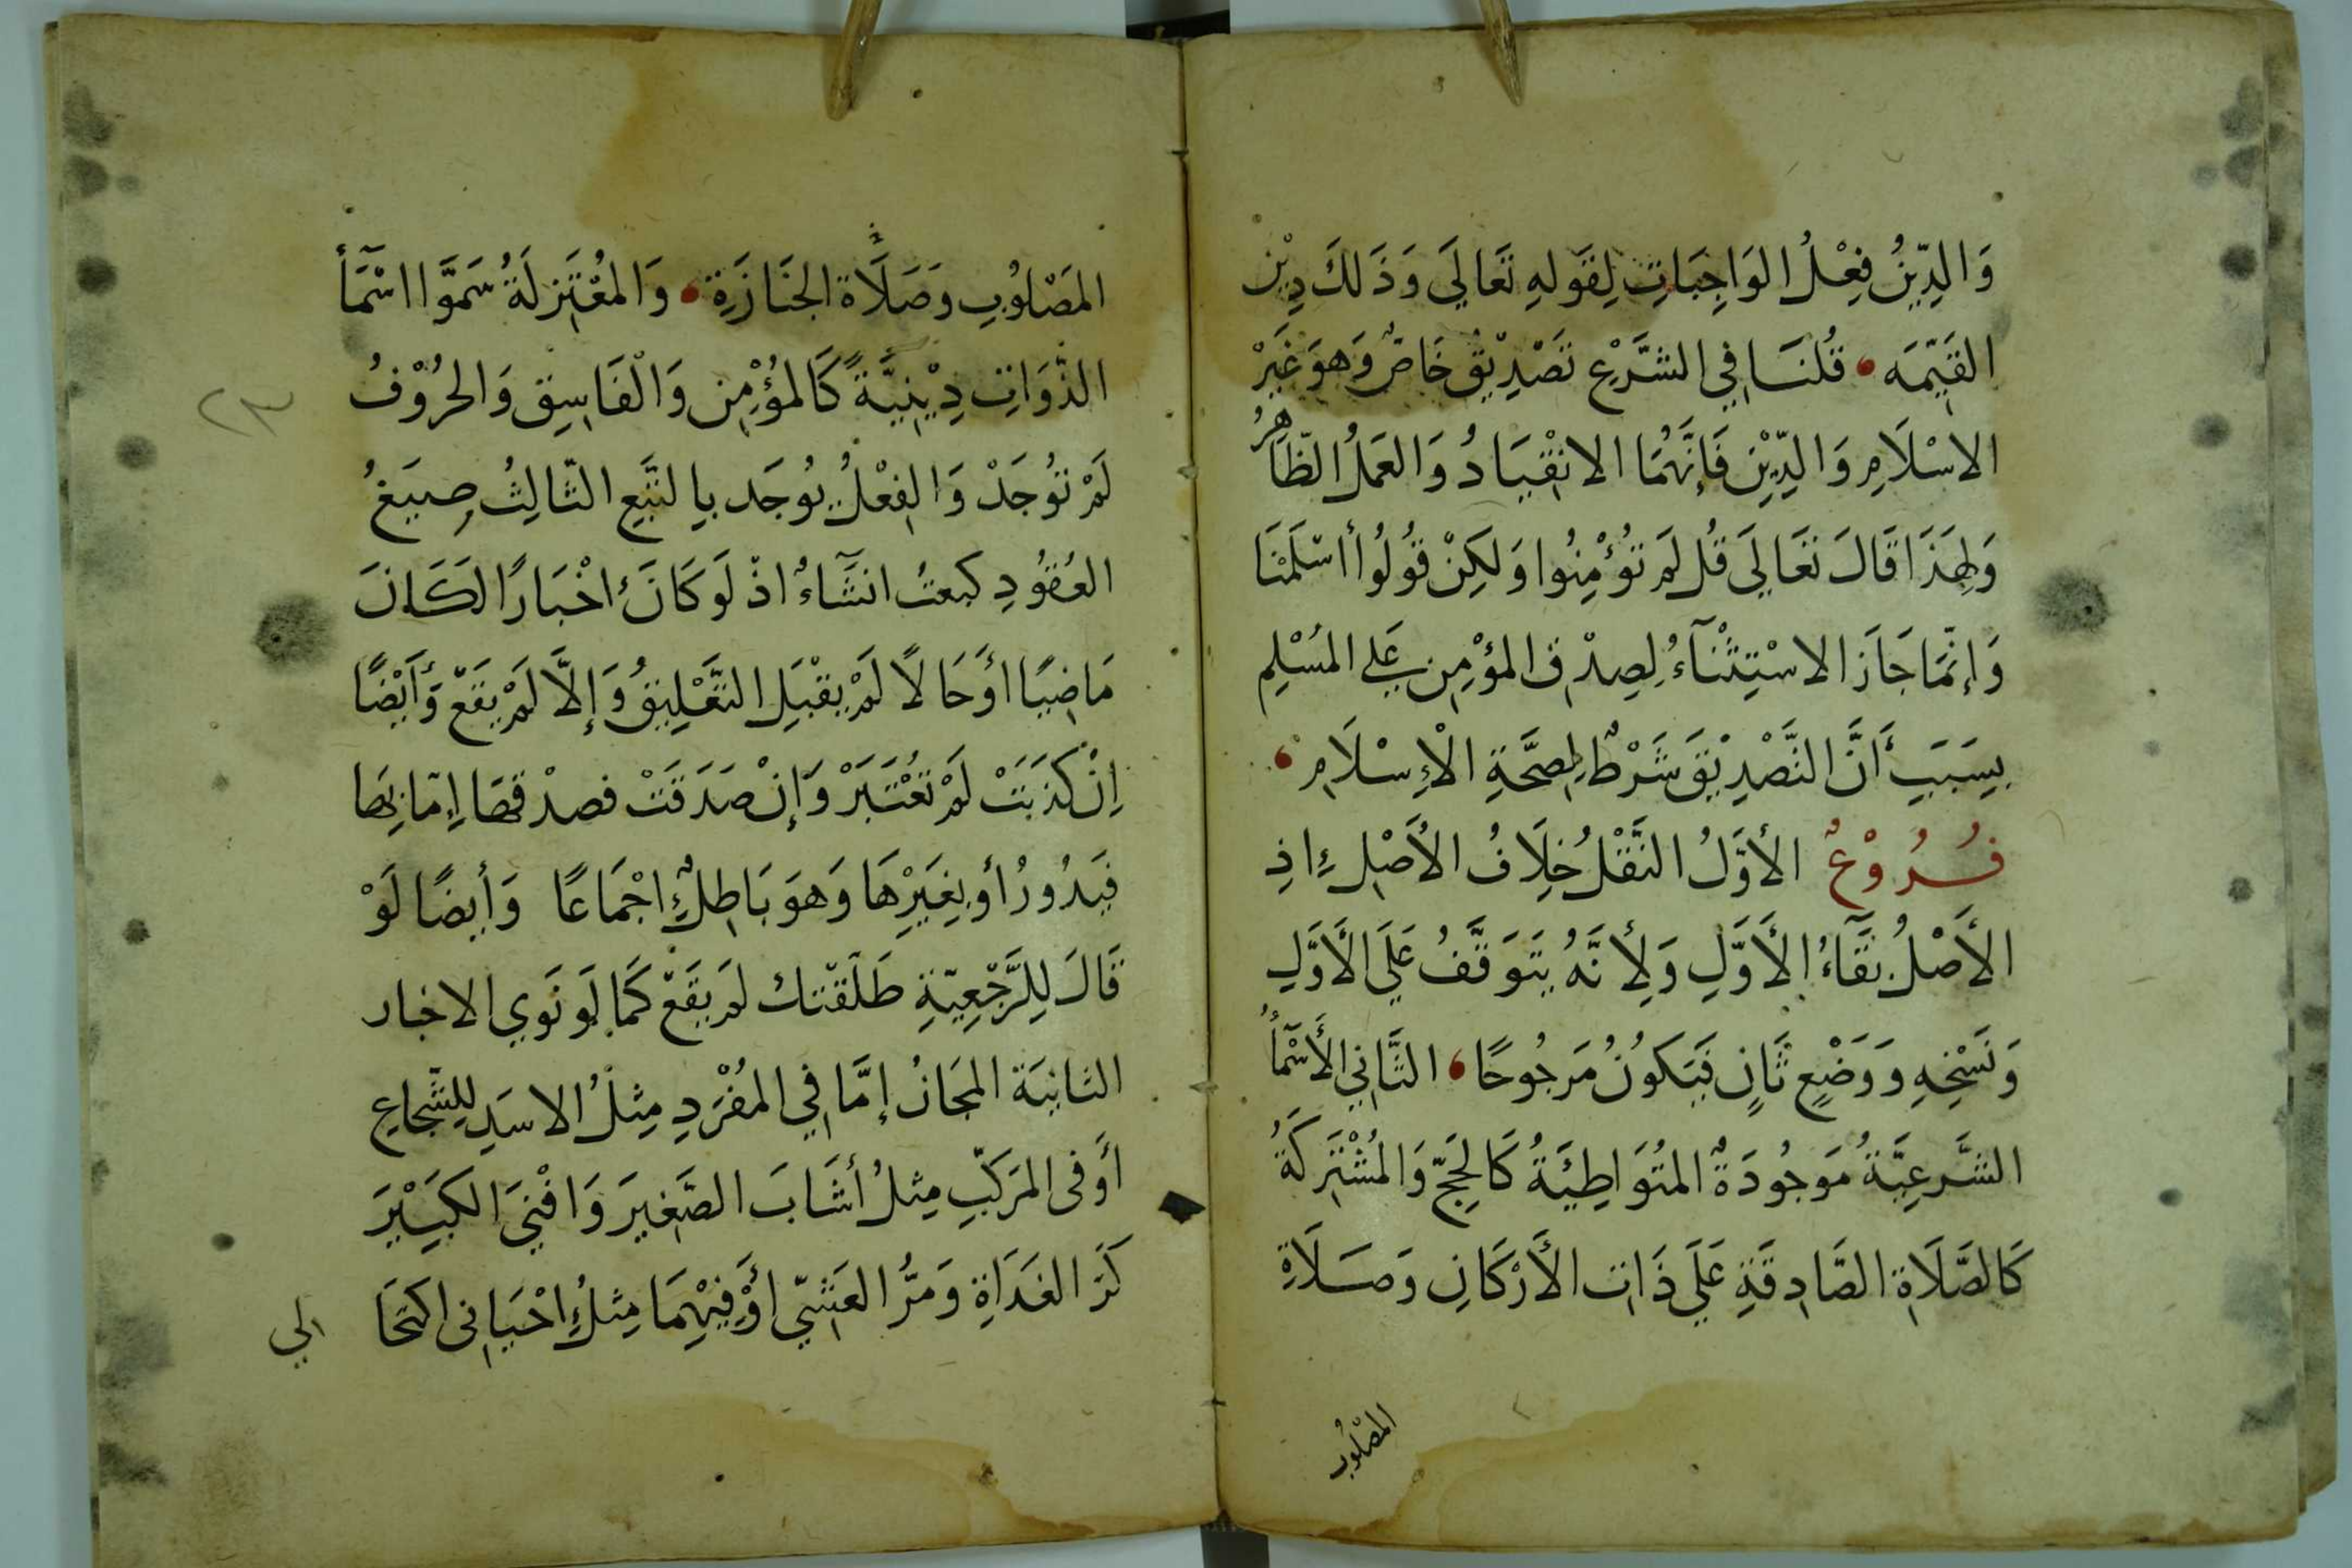 وَالدِّينُ فِعْلُ الوَاجِبَاتِ لِقَولِهِ تَعَالَى وَذَلكَ دِيْن
القَيِّمَه قُلنَا فِي الشَّرْعِ تَصْدِيْقٌ خَاصٌ وَهوَ غَيْرُ
الاسْلَامِ وَالدِّيْنِ فَإِنَّهُمَا الانْقْيَادُ وَالعَمَلُ الظَّاهِرُ
وَلِهَذَا قَالَ تَعَالَى قُل لَم تُؤْمِنُوا وَلكِنْ قُولُوا أَسْلَمْنَا
وَإِنَّمَا جَازَ الاسْتِثْنَآءُ لِصِدْقِ المؤْمِنِ عَلى المُسْلِمِ
بِسَبَبِ أَنَّ التَّصْدِيْقَ شَرْطٌ لِصِحَّةِ الْإِسْلَامِ
فُرُوْعٌ الأَوَّلُ النَّقْلُ خِلَافُ الأَصْلِ إِذِ
الأَصْلُ بَقَآءُ الأَوَّلِ وَلِأَنَّهُ يَتَوَقَّفُ عَلَى الأَوَّلِ
وَنَسْخِهِ وَوَضْعٍ ثَانٍ فَيَكُونُ مَرجُوحًا الثَّانِي الأَسْمَآءُ
الشَّرعِيَّةُ مَوجُودَةٌ المتُوَاطِيَةُ كَالحَجِّ وَالمُشْتَرَكَةُ
كَالصَّلَاةِ الصَّادِقَةِ عَلَى ذَاتِ الأَرْكَانِ وَصَلَاةِ
المصْلُوبِ
المَصْلُوبِ وَصَلَاة الجَنَازَةِ وَالمعْتَزِلَةُ سَمَّوَا اسْمَآءَ
الذَّوَاتِ دِيْنِيَّةً كَالمؤْمِنِ وَالْفَاسِقِ وَالحُرُوْفُ
لَمْ تُوجَدْ وَالفِعْلُ يُوجَد بِالتَّبَعِ الثَّالِثُ صِيَغُ
العُقُودِ كبعتُ انشَآءٌ اذْ لَوكَانَ اخْبَارًا لكَانَ
مَاضِيًا أوحَالًا لَمْ يقْبَلِ التَّعْلِيقُ وَإِلَّا لَمْ يَقَعْ وَأَيْضًا
اِنْ كَذَبَتْ لَمْ تُعْتَبَرْ وَإِنْ صَدَقَتْ فصدْقهَا إِمَّا بِهَا
فَيَدُورُ أو بِغَيْرِهَا وَهوَ بَاطِلٌ اجْمَاعًا وَأيضًا لَوْ
قَالَ لِلرَّجْعِيَّةِ طَلَّقْتك لم يَقَعْ كَمَا لَو نَوَي الاخبار
الثانيَة المجَازُ إمَّا فِي المُفْرَدِ مِثلُ الاسَدِ لِلشُّجَاعِ
أَوفى المرَكَّبِ مِثلُ أشَابَ الصَّغِيرَ وَافْنَي الكَبِيْرَ
كَرّ الغَدَاةِ وَمَرُّ العَشِيِّ أَوْ فِيْهِمَا مِثلُ احْيَانى اكتحَا
الي
٢٣